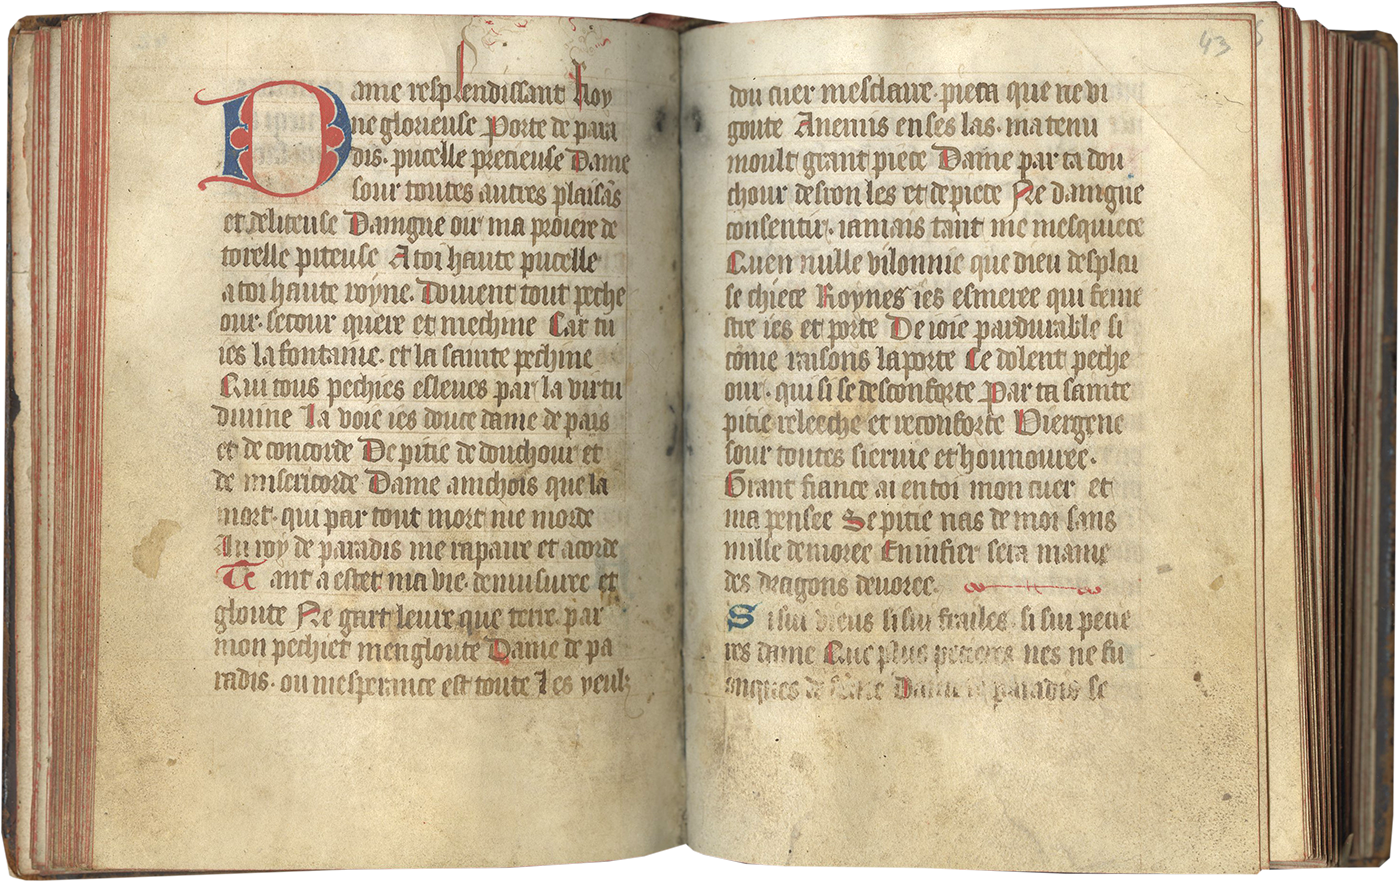 Dame resplendissant Roy
ne glorieuse Porte de para
dis. pucelle precieuse Dame
sour toutes autres plaisãs
et deliteuse Daingne oir ma proiere de
toreille piteuse A toi haute pucelle
a toi haute royne. Doivent tout peche
our. secour querre et mechine Car tu
ies la fontaine. et la sainte pechine
Qui tous pechies esleves par la virtu
divine La voie ies douce dame de pais
et de concorde De pitie de douchour et
de misericorde Dame ainchois que la
mort. qui par tout mort me morde
Au roy de paradis me rapaire et acorde
Tant a estet ma vie. demusiree et
gloute Ne gart leure que terre par
mon pechiet mengloute Dame de pa
radis. ou mesperance est toute Les yeulz
43
dou cuer mesclaire. pieca que ne vi
goute Anemis en ses las. ma tenu
moult grant piece Dame par ta dou
chour desron les et depiece Ne daingne
consentir. iamais tant me mesquiece
Quen nulle vilonnie que dieu desplai
se chiece Roynes ies esmeree qui feme
stre ies et porte De ioie pardurable si
come raisons laporte Ce dolent peche
our. qui si se desconforte Par ta sainte
pitie releeche et reconforte Viergene
sour toutes siervie et hounouree.
Grant fiance ai en toi mon cuer et
ma pensee Se pitie nas de moi sans
nulle demoree En infier sera mame
des dragons devoree.
Si sui vieus si sui frailes. si sui pecie
res dame Que plus pecieres nes ne fu
onques de feme Dame de paradis se